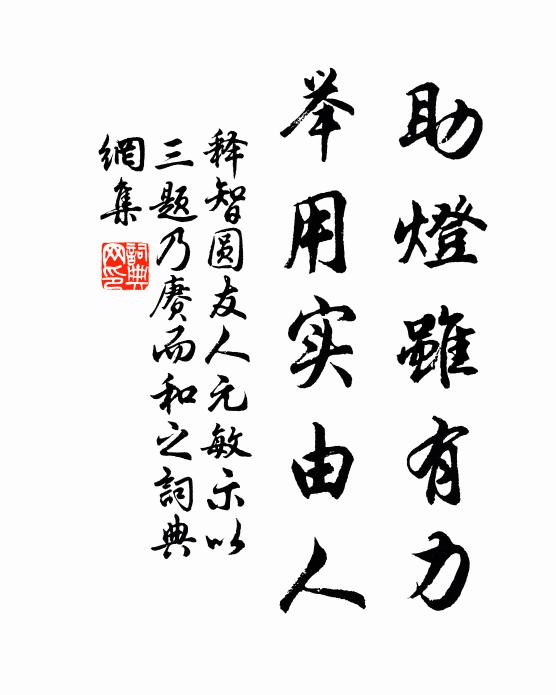 助燈雖有力
举用实由人
释智圆友人元敏示以
三题乃赓而和之詞典
網集
詞典
网印